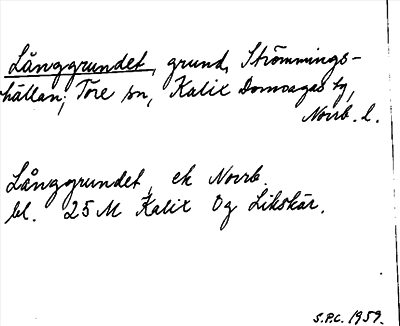 Långgrundet, grund, Strömmings-
hällan, Töre sn, Kalix Domsagas tg,
Norrb. l.
Långgrundet, ek Norrb.
bl. 25 M Kalix Og Likskär.
S.P.C. 1959.